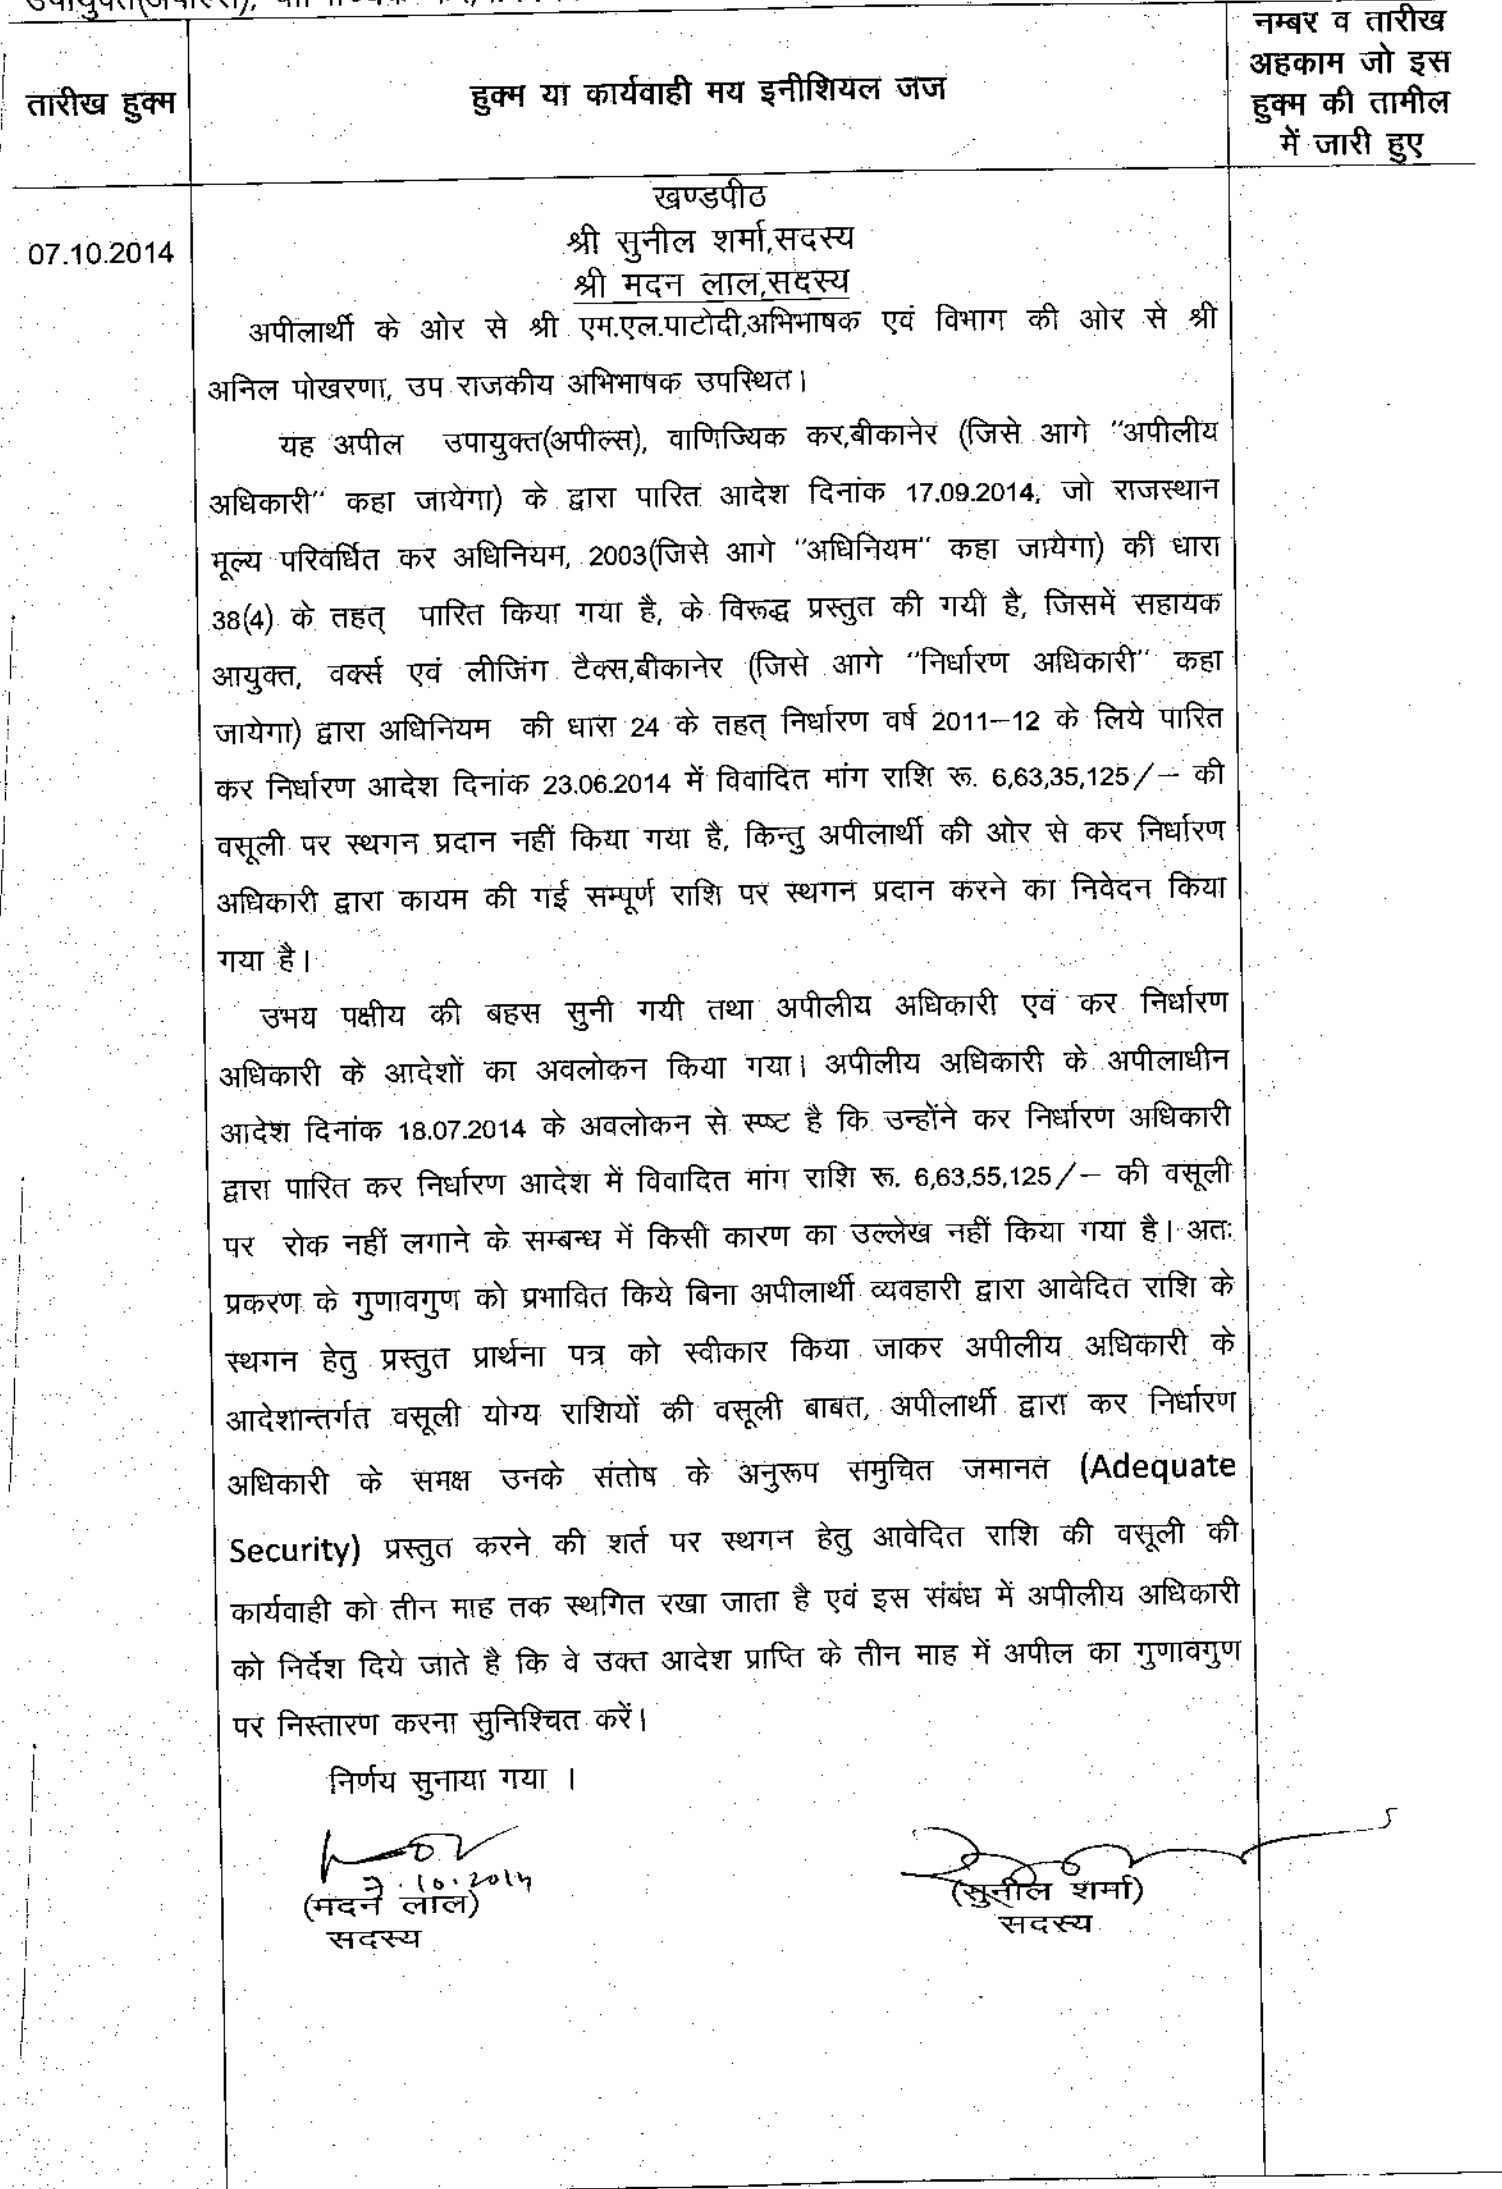 तारीख हुक्म
हुक्म या कार्यवाही मय इनीशियल जज
नम्बर व तारीख
अहकाम जो इस
हुक्म की तामील
में जारी हुए
07.10.2014
खण्डपीठ
श्री सुनील शर्मा,सदस्य
श्री मदन लाल,सदस्य
अपीलार्थी के ओर से श्री एम.एल.पाटोदी,अभिभाषक एवं विभाग की ओर से श्री
अनिल पोखरणा, उप राजकीय अभिभाषक उपस्थित।
यह अपील उपायुक्त(अपील्स), वाणिज्यिक कर,बीकानेर (जिसे आगे "अपीलीय
अधिकारी" कहा जायेगा) के द्वारा पारित आदेश दिनांक 17.09.2014, जो राजस्थान
मूल्य परिवर्धित कर अधिनियम, 2003(जिसे आगे "अधिनियम" कहा जायेगा) की धारा
38(4) के तहत् पारित किया गया है, के विरूद्ध प्रस्तुत की गयी है, जिसमें सहायक
आयुक्त, वर्क्स एवं लीजिंग टैक्स,बीकानेर (जिसे आगे "निर्धारण अधिकारी" कहा
जायेगा) द्वारा अधिनियम की धारा 24 के तहत् निर्धारण वर्ष 2011–12 के लिये पारित
कर निर्धारण आदेश दिनांक 23.06.2014 में विवादित मांग राशि रू. 6,63,35,125/– की
वसूली पर स्थगन प्रदान नहीं किया गया है, किन्तु अपीलार्थी की ओर से कर निर्धारण
अधिकारी द्वारा कायम की गई सम्पूर्ण राशि पर स्थगन प्रदान करने का निवेदन किया
गया है।
उभय पक्षीय की बहस सुनी गयी तथा अपीलीय अधिकारी एवं कर निर्धारण
अधिकारी के आदेशों का अवलोकन किया गया। अपीलीय अधिकारी के अपीलाधीन
आदेश दिनांक 18.07.2014 के अवलोकन से स्पष्ट है कि उन्होंने कर निर्धारण अधिकारी
द्वारा पारित कर निर्धारण आदेश में विवादित मांग राशि रू. 6,63,55,125/– की वसूली
पर रोक नहीं लगाने के सम्बन्ध में किसी कारण का उल्लेख नहीं किया गया है। अतः
प्रकरण के गुणावगुण को प्रभावित किये बिना अपीलार्थी व्यवहारी द्वारा आवेदित राशि के
स्थगन हेतु प्रस्तुत प्रार्थना पत्र को स्वीकार किया जाकर अपीलीय अधिकारी के
आदेशान्तर्गत वसूली योग्य राशियों की वसूली बाबत, अपीलार्थी द्वारा कर निर्धारण
अधिकारी के समक्ष उनके संतोष के अनुरूप समुचित जमानत (Adequate
Security) प्रस्तुत करने की शर्त पर स्थगन हेतु आवेदित राशि की वसूली की
कार्यवाही को तीन माह तक स्थगित रखा जाता है एवं इस संबंध में अपीलीय अधिकारी
को निर्देश दिये जाते है कि वे उक्त आदेश प्राप्ति के तीन माह में अपील का गुणावगुण
पर निस्तारण करना सुनिश्चित करें।
निर्णय सुनाया गया ।
7.10.2014
(मदन लाल)
सदस्य
(सुनील शर्मा)
सदस्य